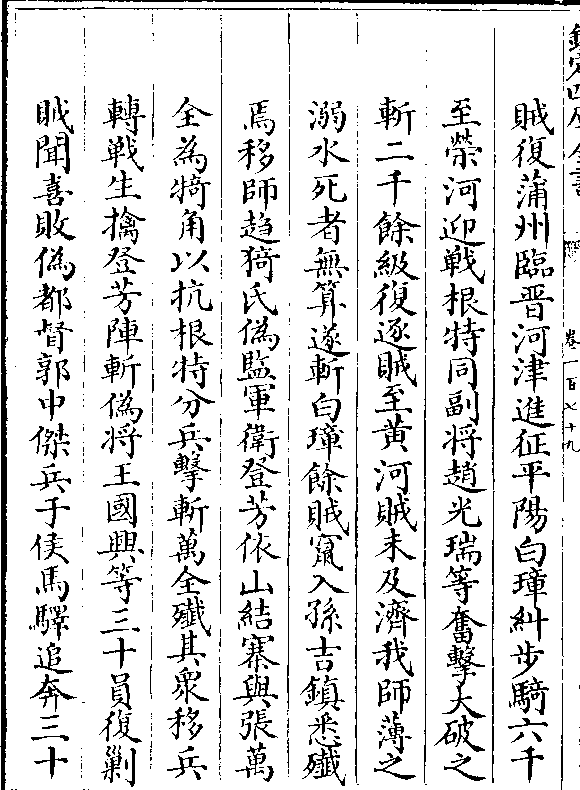 欽定四庫全書
卷一百七十九
賊復蒲州臨晉河津進征平陽白璋糾步騎六千
至榮河迎戰根特同副將趙光瑞等奮擊大破之
斬二千餘級復逐賊至黃河賊未及濟我師薄之
溺水死者無算遂斬白璋餘賊竄入孫吉鎮悉殲
焉移師趨猗氏偽監軍衛登芳依山結寨與張萬
全為犄角以抗根特分兵擊斬萬全殲其衆移兵
轉戰生擒登芳陣斬偽將王國興等三十員復剿
賊聞喜敗偽都督郭中傑兵于侯馬驛追奔三十